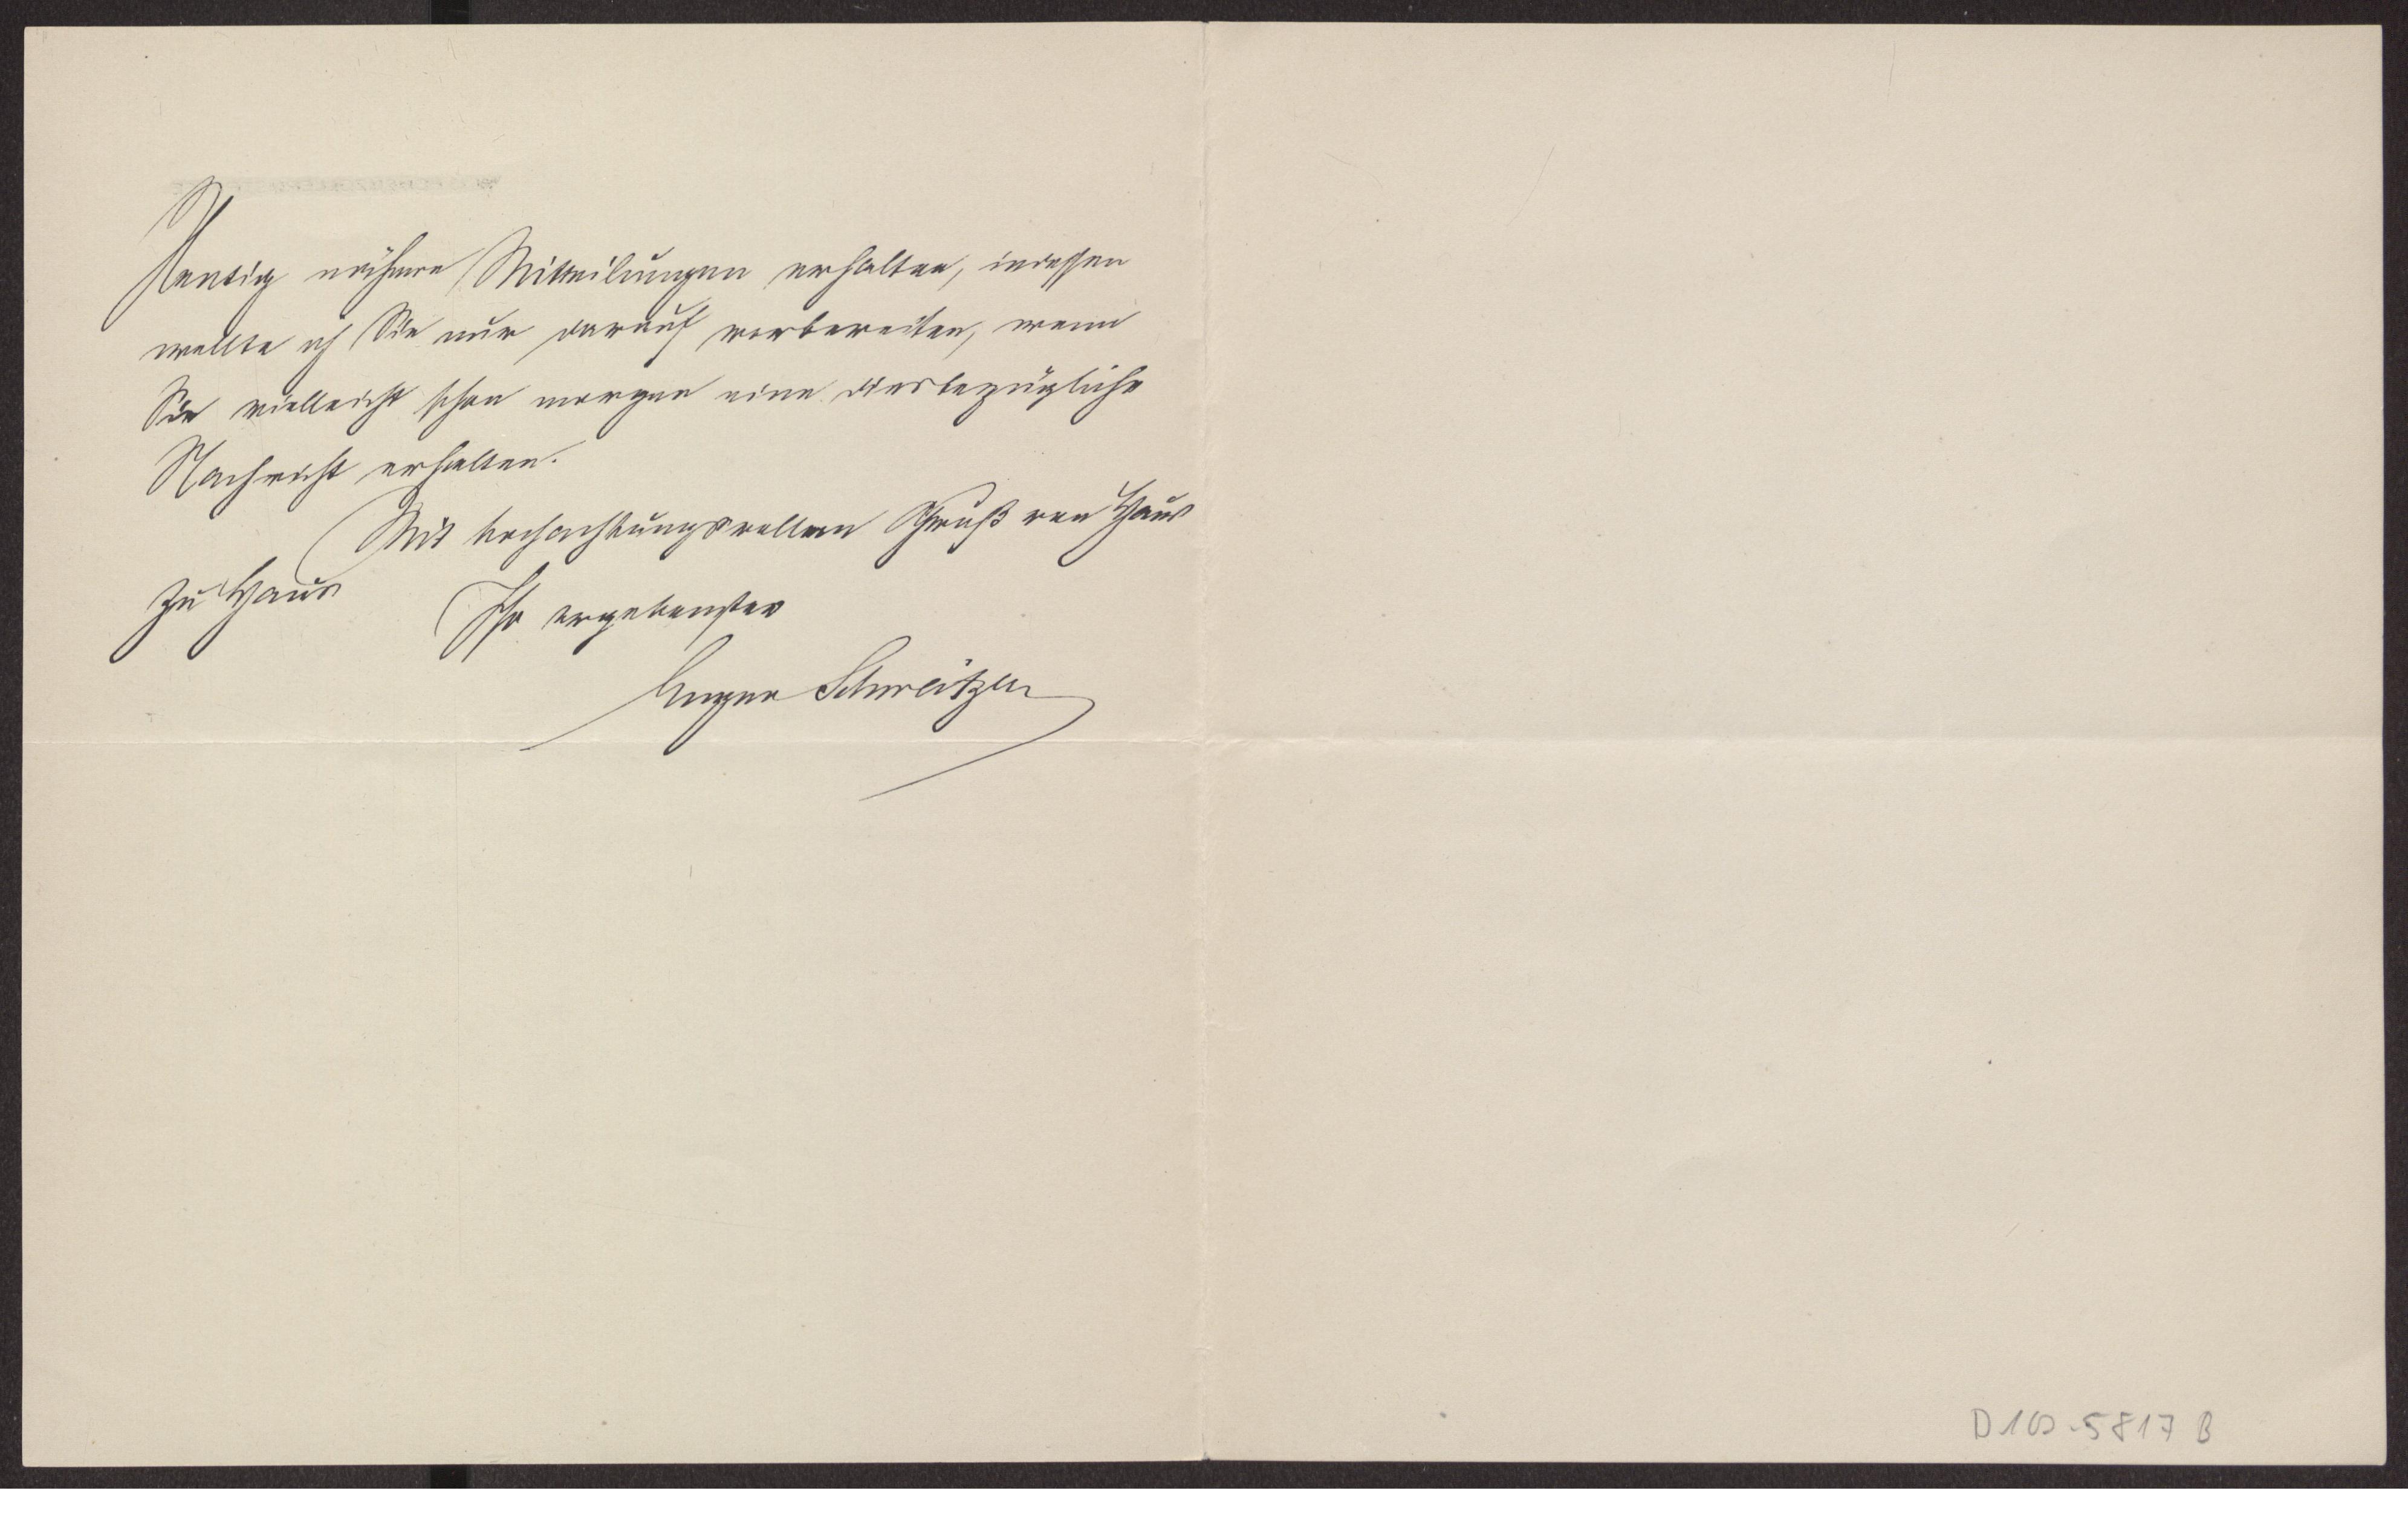 nähere Mitteilungen erhalten, indessen
wollte ich Sie nur darauf vorbereiten, wenn
Sie vielleicht schon morgen eine diesbezügliche
Nachricht erhalten.
Mit hochachtungsvollem Gruß von Haus
zu Haus
Ihr ergebenster
Eugen Schweitzer
D 100.5817 B